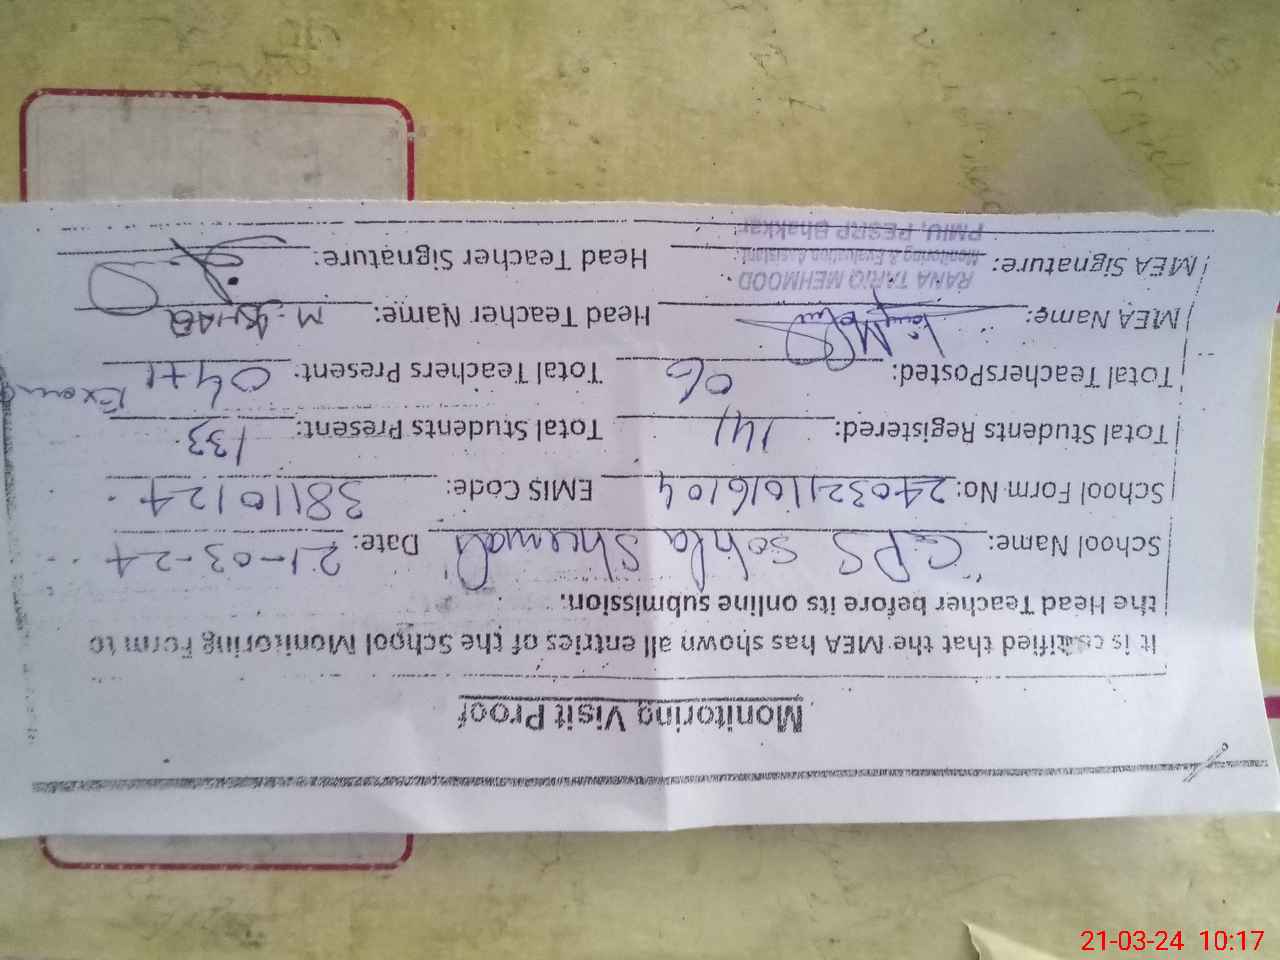 Monitoring Visit Proof
It is certified that the MEA has shown all entries of the School Monitoring Form to
the Head Teacher before its online submission.
School Name: GPS Sohla Shumali Date: 21-03-24
School Form No: 2403211016104 EMIS Code: 38110124
Total Students Registered: 141 Total Students Present: 133
Total Teachers Posted: 06 Total Teachers Present: 04+1 Exam
MEA Name: Head Teacher Name: M.
MEA Signature: Head Teacher Signature:
RANA TARIQ MEHMOOD
Monitoring & Evaluation Assistant
PMIU, PESRP Bhakkar
21-03-24 10:17